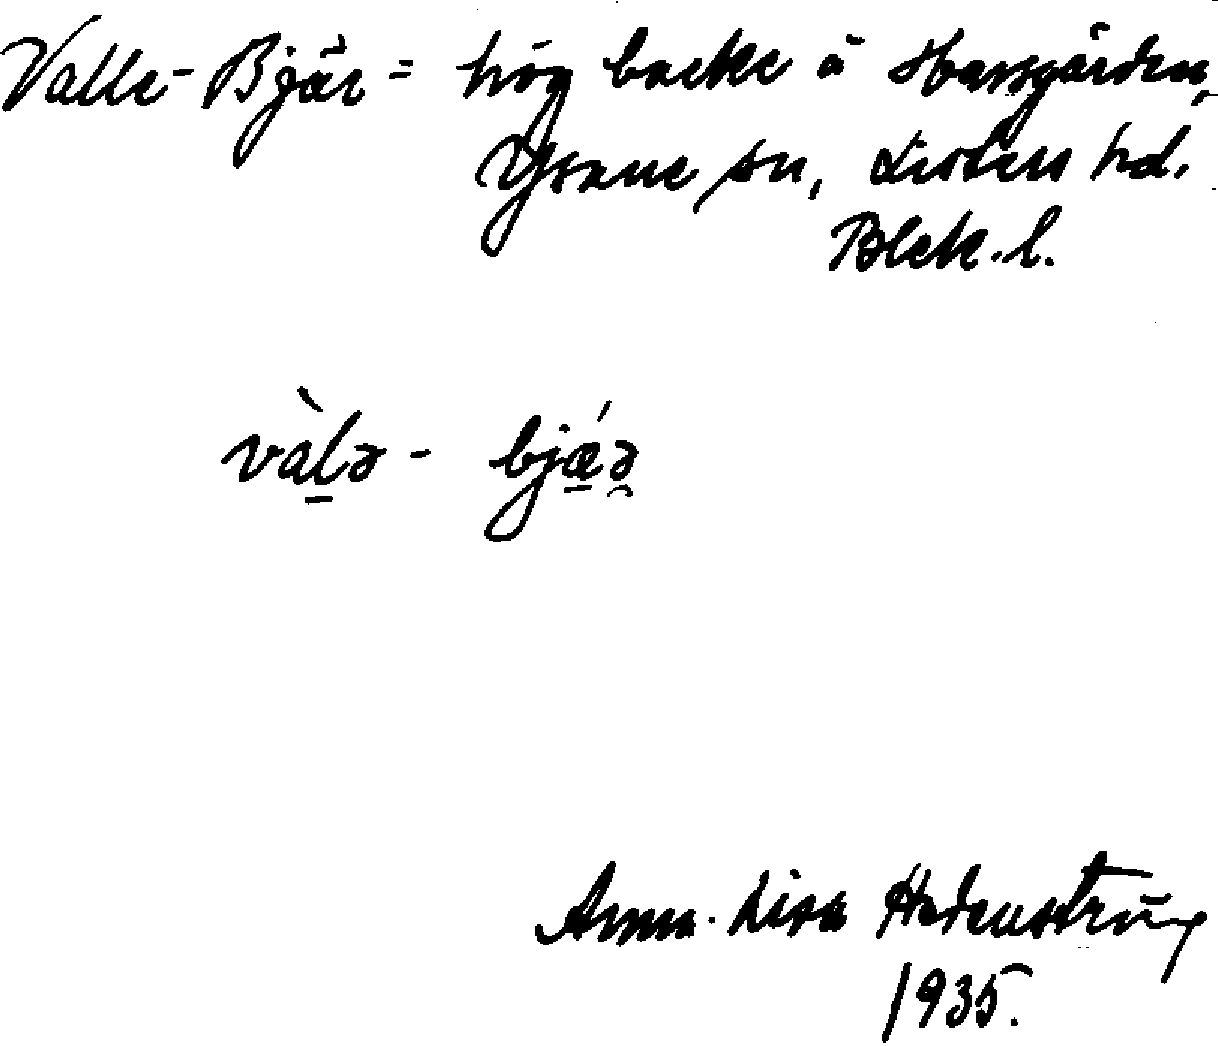 Valle-Bjär = hög backe å Hassgården,
Ysane sn, Listers hd.
Blek. l.
vàlə - bjǽə̯
Anna-Lisa Hedenström
1935.